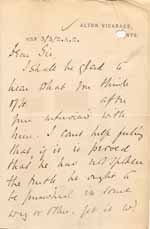 ALTON VICARAGE,
Dear Sir
I shall be glad to
hear what you think
of after
your interview with
him. I can't help feeling
that if it is proved
that he has not spoken
the truth he ought to
be punished in some
way or other, for it w